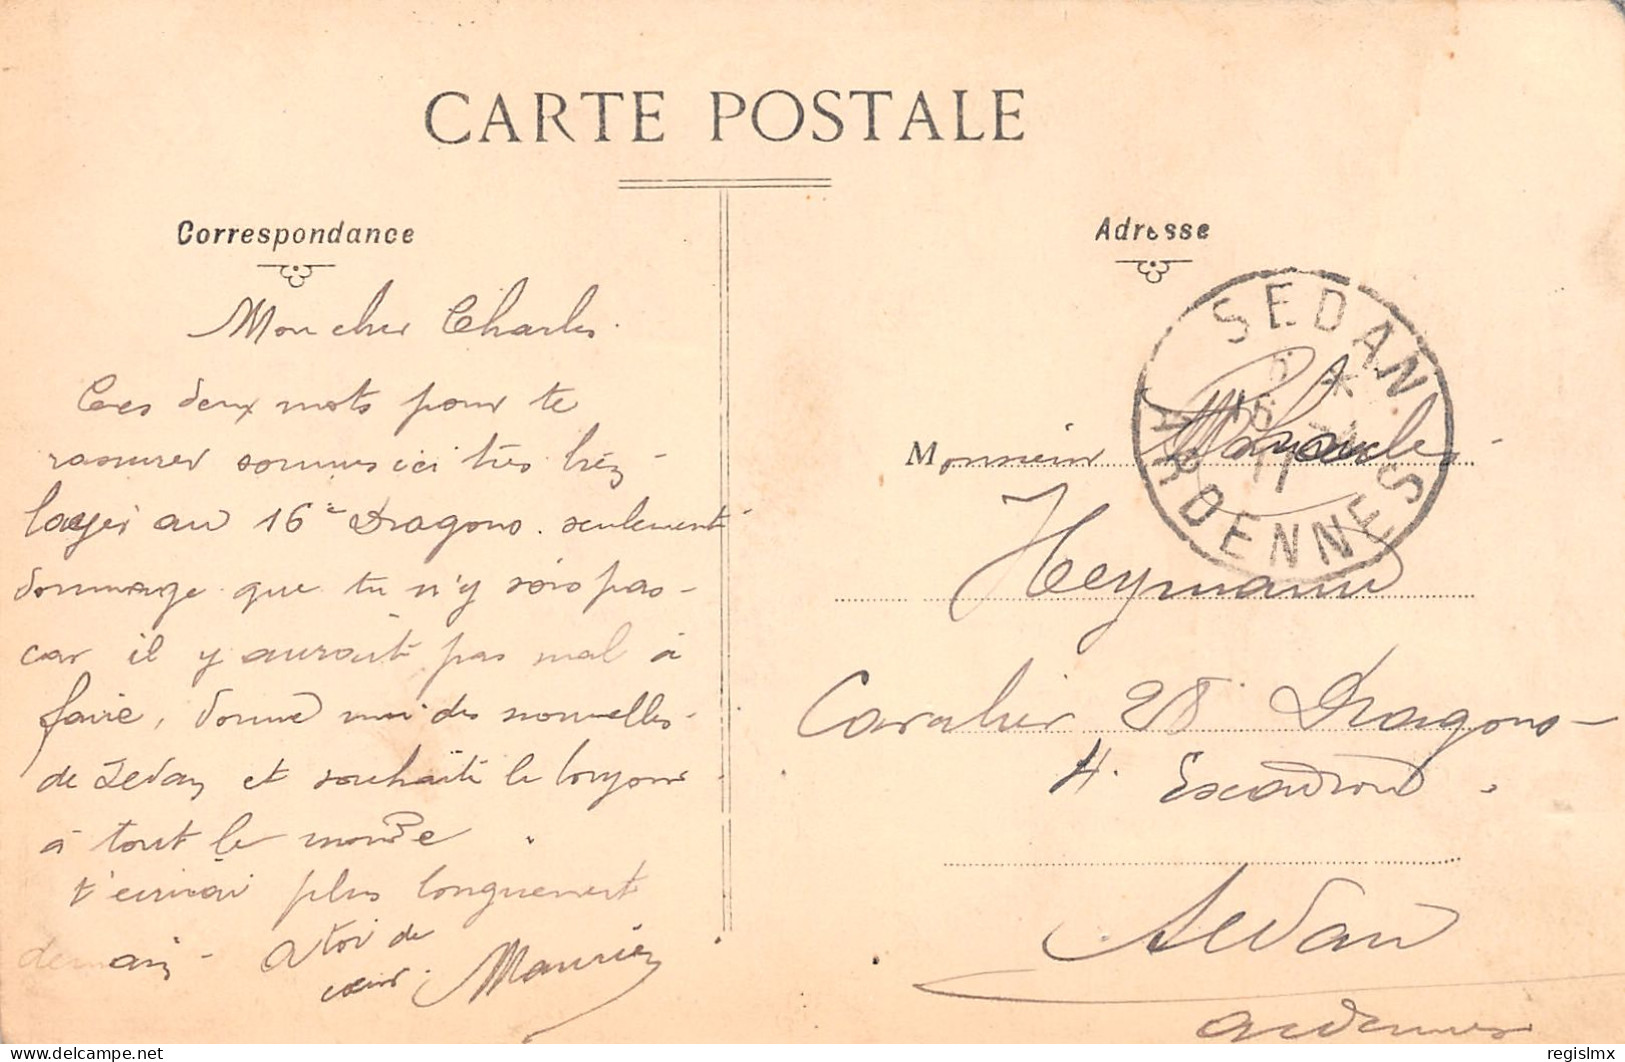 CARTE POSTALE
Correspondance
Mon cher Charles.
Ces deux mots pour te
rassurer sommes ici très bien
logés au 16e Dragons. seulement
dommage que tu n'y sois pas -
car il y aurait pas mal à
faire, donne moi des nouvelles -
de Sedan et souhaite le bonjour
à tout le monde.
t'écrirai plus longuement
demain - A toi de
cœur. Maurice
Adresse
SEDAN
ARDENNES
Monsieur
Heymann
Cavalier 28 Dragons -
4. Escadron.
Sedan
Ardennes
delcampe.net
regislmx